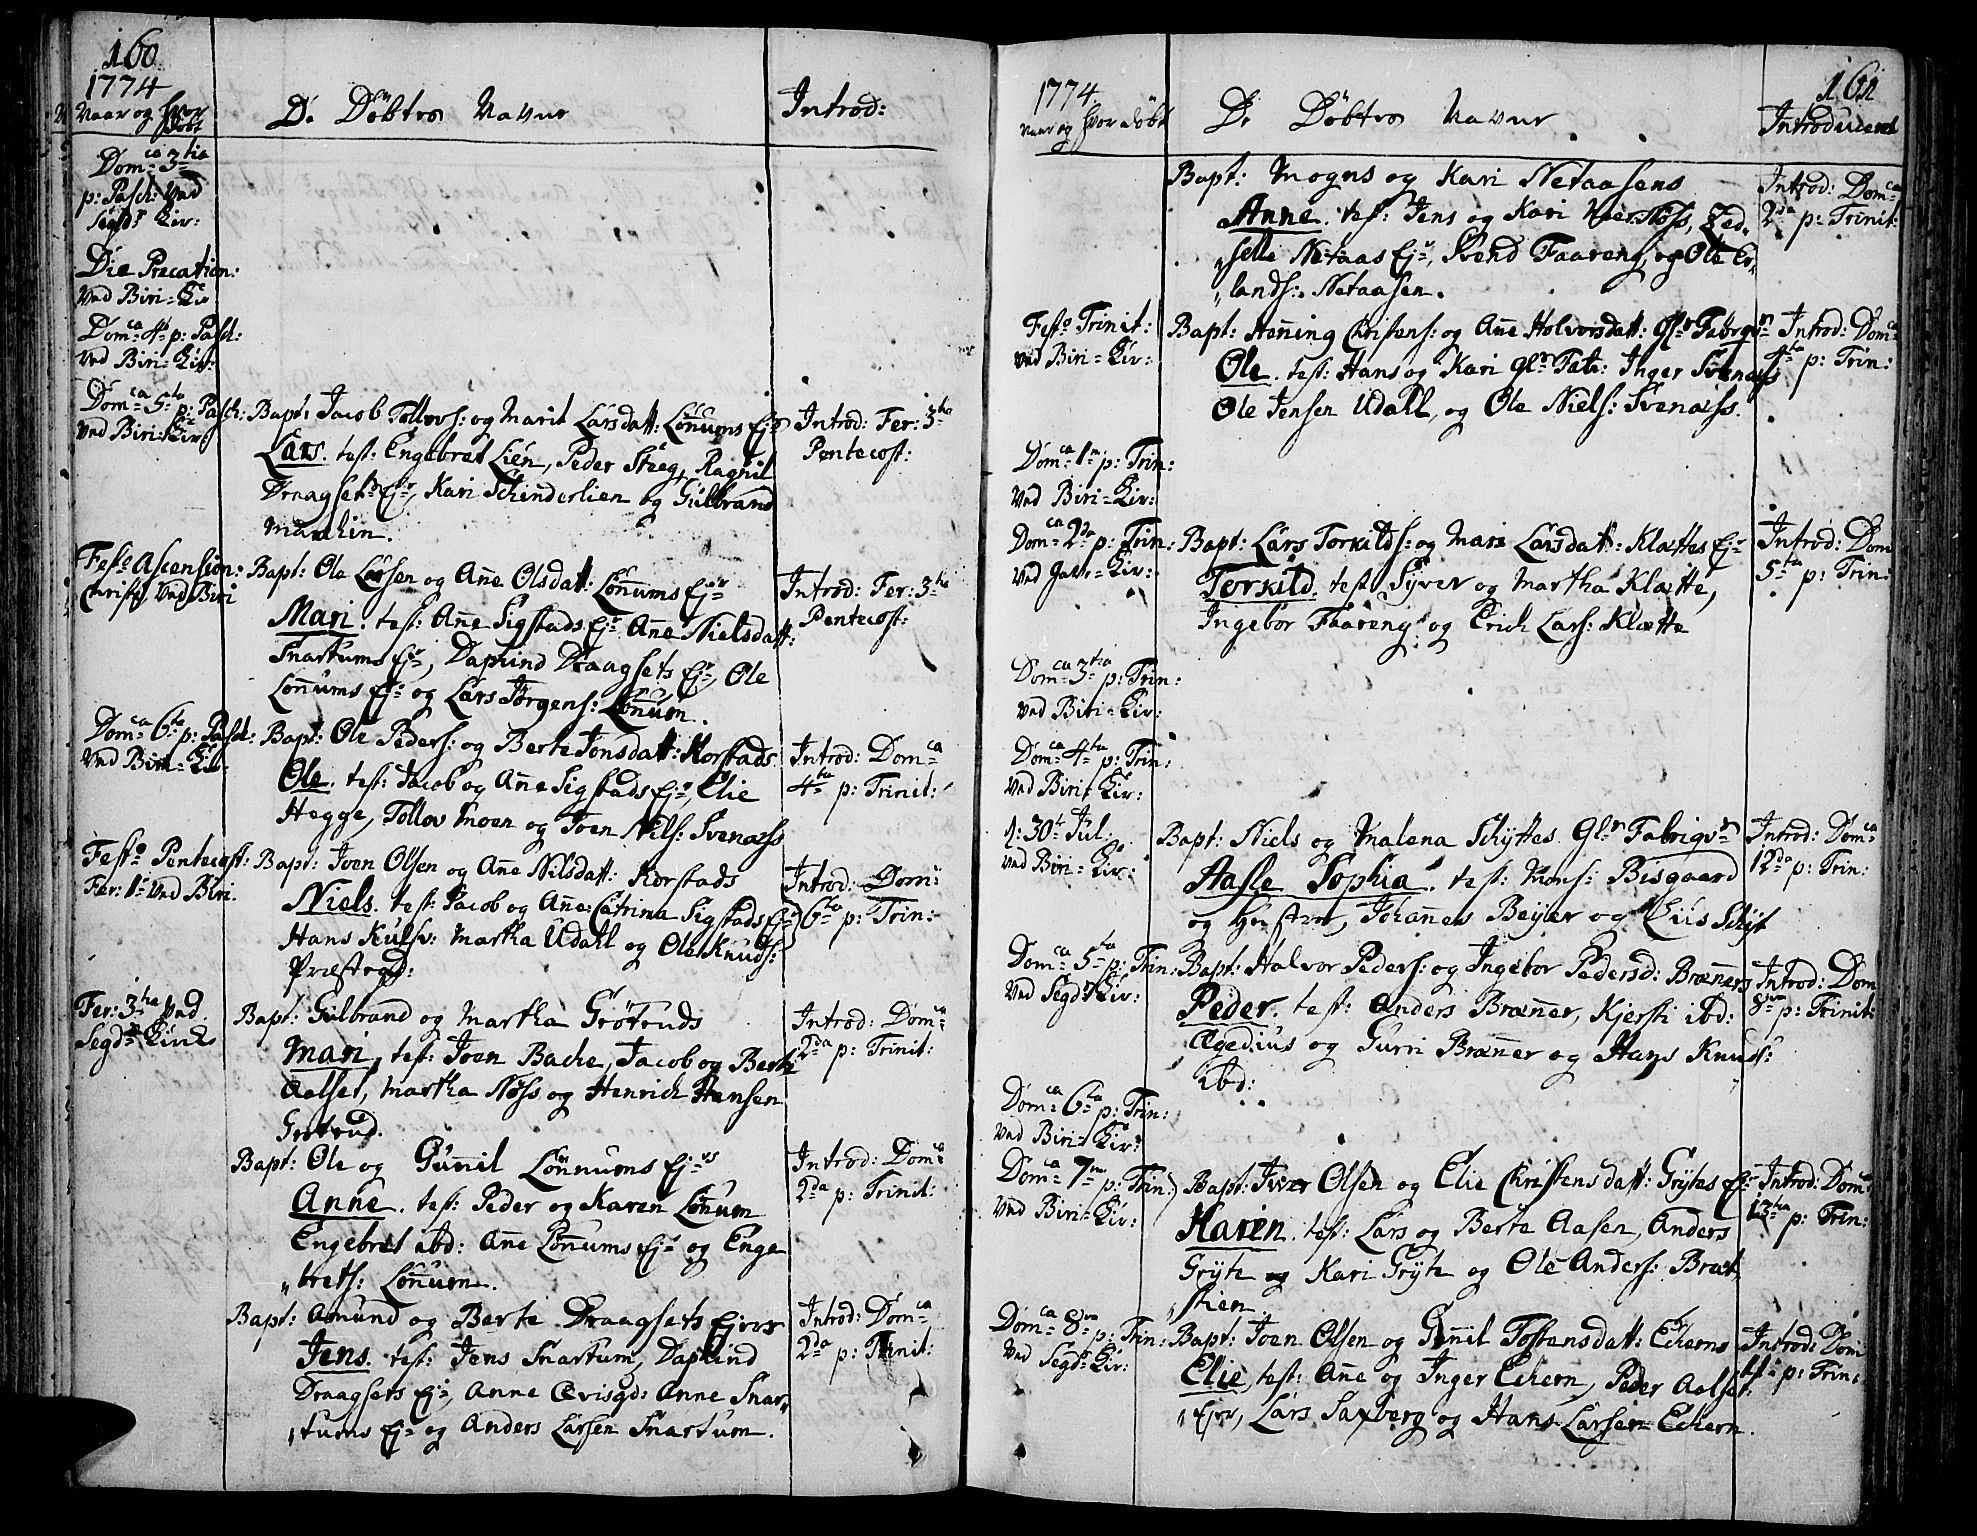 160
1774
Naar og hvor Döbt
De Döbtes Navne
Introd:
Domca 3tia
p: Pasch: Ved
Segds Kir:
Die Precation:
Ved Biri-Kir
Domca 4ta p: Pasch:
Ved Biri-Kir:
Domca 5ta p: Pasch:
Ved Biri-Kir:
Bapt: Jacob Tollovs: og Marit Larsdatt: Lönnums Eje
Lars. test: Engebret Lien, Peder Steeg, Ragnil
Draagsets Eje, Kari Schinderlien og Gulbrand
Introd: Fer: 3tia
Pentecost:
Festo Ascension:
Christi, Ved Biri
Bapt: Ole Lassen og Anne Olsdatt: Lönnums Eje
Mari. test: Anne Sigstads Eje Anne Nielsdatt:
Snartums Eje, Daprind Draagsets Eje, Ole
Lönnums Eje og Lars Jörgens: Lönnum.
Introd: Fer: 3tia
Pentecost:
Domca 6ta p: Pasch:
Ved Biri-Kir:
Bapt: Ole Peders: og Berte Jonsdatt: Korstads
Ole. test: Jacob og Anne Sigstads Eje, Elie
Hegge, Tollov Moen og Joen Nils: Svenæss
Introd: Domca
4ta p: Trinit:
Festo Pentecost:
Fer: 1a Ved Biri.
Bapt: Joen Olsen og Anne Nilsdatt: Korstads
Niels. test: Jacob og Anne Catrina Sigstads Eje
Hans Kulsv: Martha Udahl og Ole Knuds:
Præstegd:
Introd: Dom:
6ta p: Trin:
Fer: 3tia Ved
Segds Kirke
Bapt: Gulbrand og Martha Grötruds
Mari, test: Joen Bache, Jacob og Berte
Aalset, Martha Nöss og Henrich Hansen
Grötrud.
Introd: Domca
2da p: Trinit:
Bapt: Ole og Gunnil Lönnums Ejes
Anne. test: Peder og Karen Lönnum
Engebret ibd: Anne Lönnums Eje og Enge
brets: Lönnum.
Introd: Domca
2da p: Trinit:
Bapt: Amund og Berte Draagsets Ejers
Jens. test: Jens Snartum, Daprind
Draagsets Eje, Anne Oevisgd: Anne Snar
tums Eje og Anders Larsen Snartum.
Introd: Domca
2da p: Trinit:
161
1774
Naar og hvor Döbt
De Döbtes Navne
Introduceret
Bapt: Mogns og Kari Netaasens
Anne. test: Jens og Kari Nöss, Zed
selle Netaas Eje, Svend Faareng, og Ole Er
lands: Netaasen.
Introd: Domca
2da p: Trinit:
Festo Trinit:
Ved Biri-Kir:
Bapt: Henning Christens: og Anne Holvorsdatt: Glr Fabrqvn
Ole. test: Hans og Kari Glr Fabr: Inger Svenæss
Ole Jensen Udall, og Ole Niels: Svenæss.
Introd: Domca
4ta p: Trin:
Domca 1m p: Trin:
Ved Biri-Kir:
Domca 2da p: Trin:
Ved Kir:
Bapt: Lars Torkilds: og Mari Larsdatt: Klættes Eje
Torkild. test: Syver og Martha Klætte,
Ingebor Faareng og Erich Lars: Klætte
Introd: Dom
5ta p: Trin:
Domca 3tia p: Trin:
Ved Biri-Kir:
Domca 4ta p: Trin:
Ved Biri-Kir:
d: 30te Jul:
Ved Biri-Kir:
Bapt: Niels og Malena Schyttes Glr Fabriqvn
Aasle Sophia. test: Mons: Bisgaard
og Hustroe, Johannes Beyer og Liis Schyt
Introd: Domca
12da p: Trin:
Domca 5ta p: Trin:
Ved Segds Kir:
Bapt: Halvor Peders: og Ingebor Pedersd: Brænners
Peder. test: Anders Brænner, Kjersti ibd:
Ægedius og Gurri Brænner og Hans Knuds:
ibd:
Introd: Dom
8va p: Trinit:
Domca 6ta p: Trin:
Ved Biri-Kir:
Domca 7ma p: Trin:
Ved Biri-Kir:
Bapt: Iver Olsen og Elie Christensdatt: Grytes Eje
Karen. test: Lars og Berte Aasen, Anders
Gryte og Kari Gryte og Ole Anders: Bræt
stien
Introd: Dom:
13tia p: Trin:
Domca 8va p: Trin:
Ved Segds Kir:
Bapt: Joen Olsen og Gunnil Tostensdatt: Echerns
Elie, test: Anne og Inger Echern, Peder Aalset
Ejer, Lars Saxberg og Hans Larsen Echern.
Introd: Dom
p: Trin: